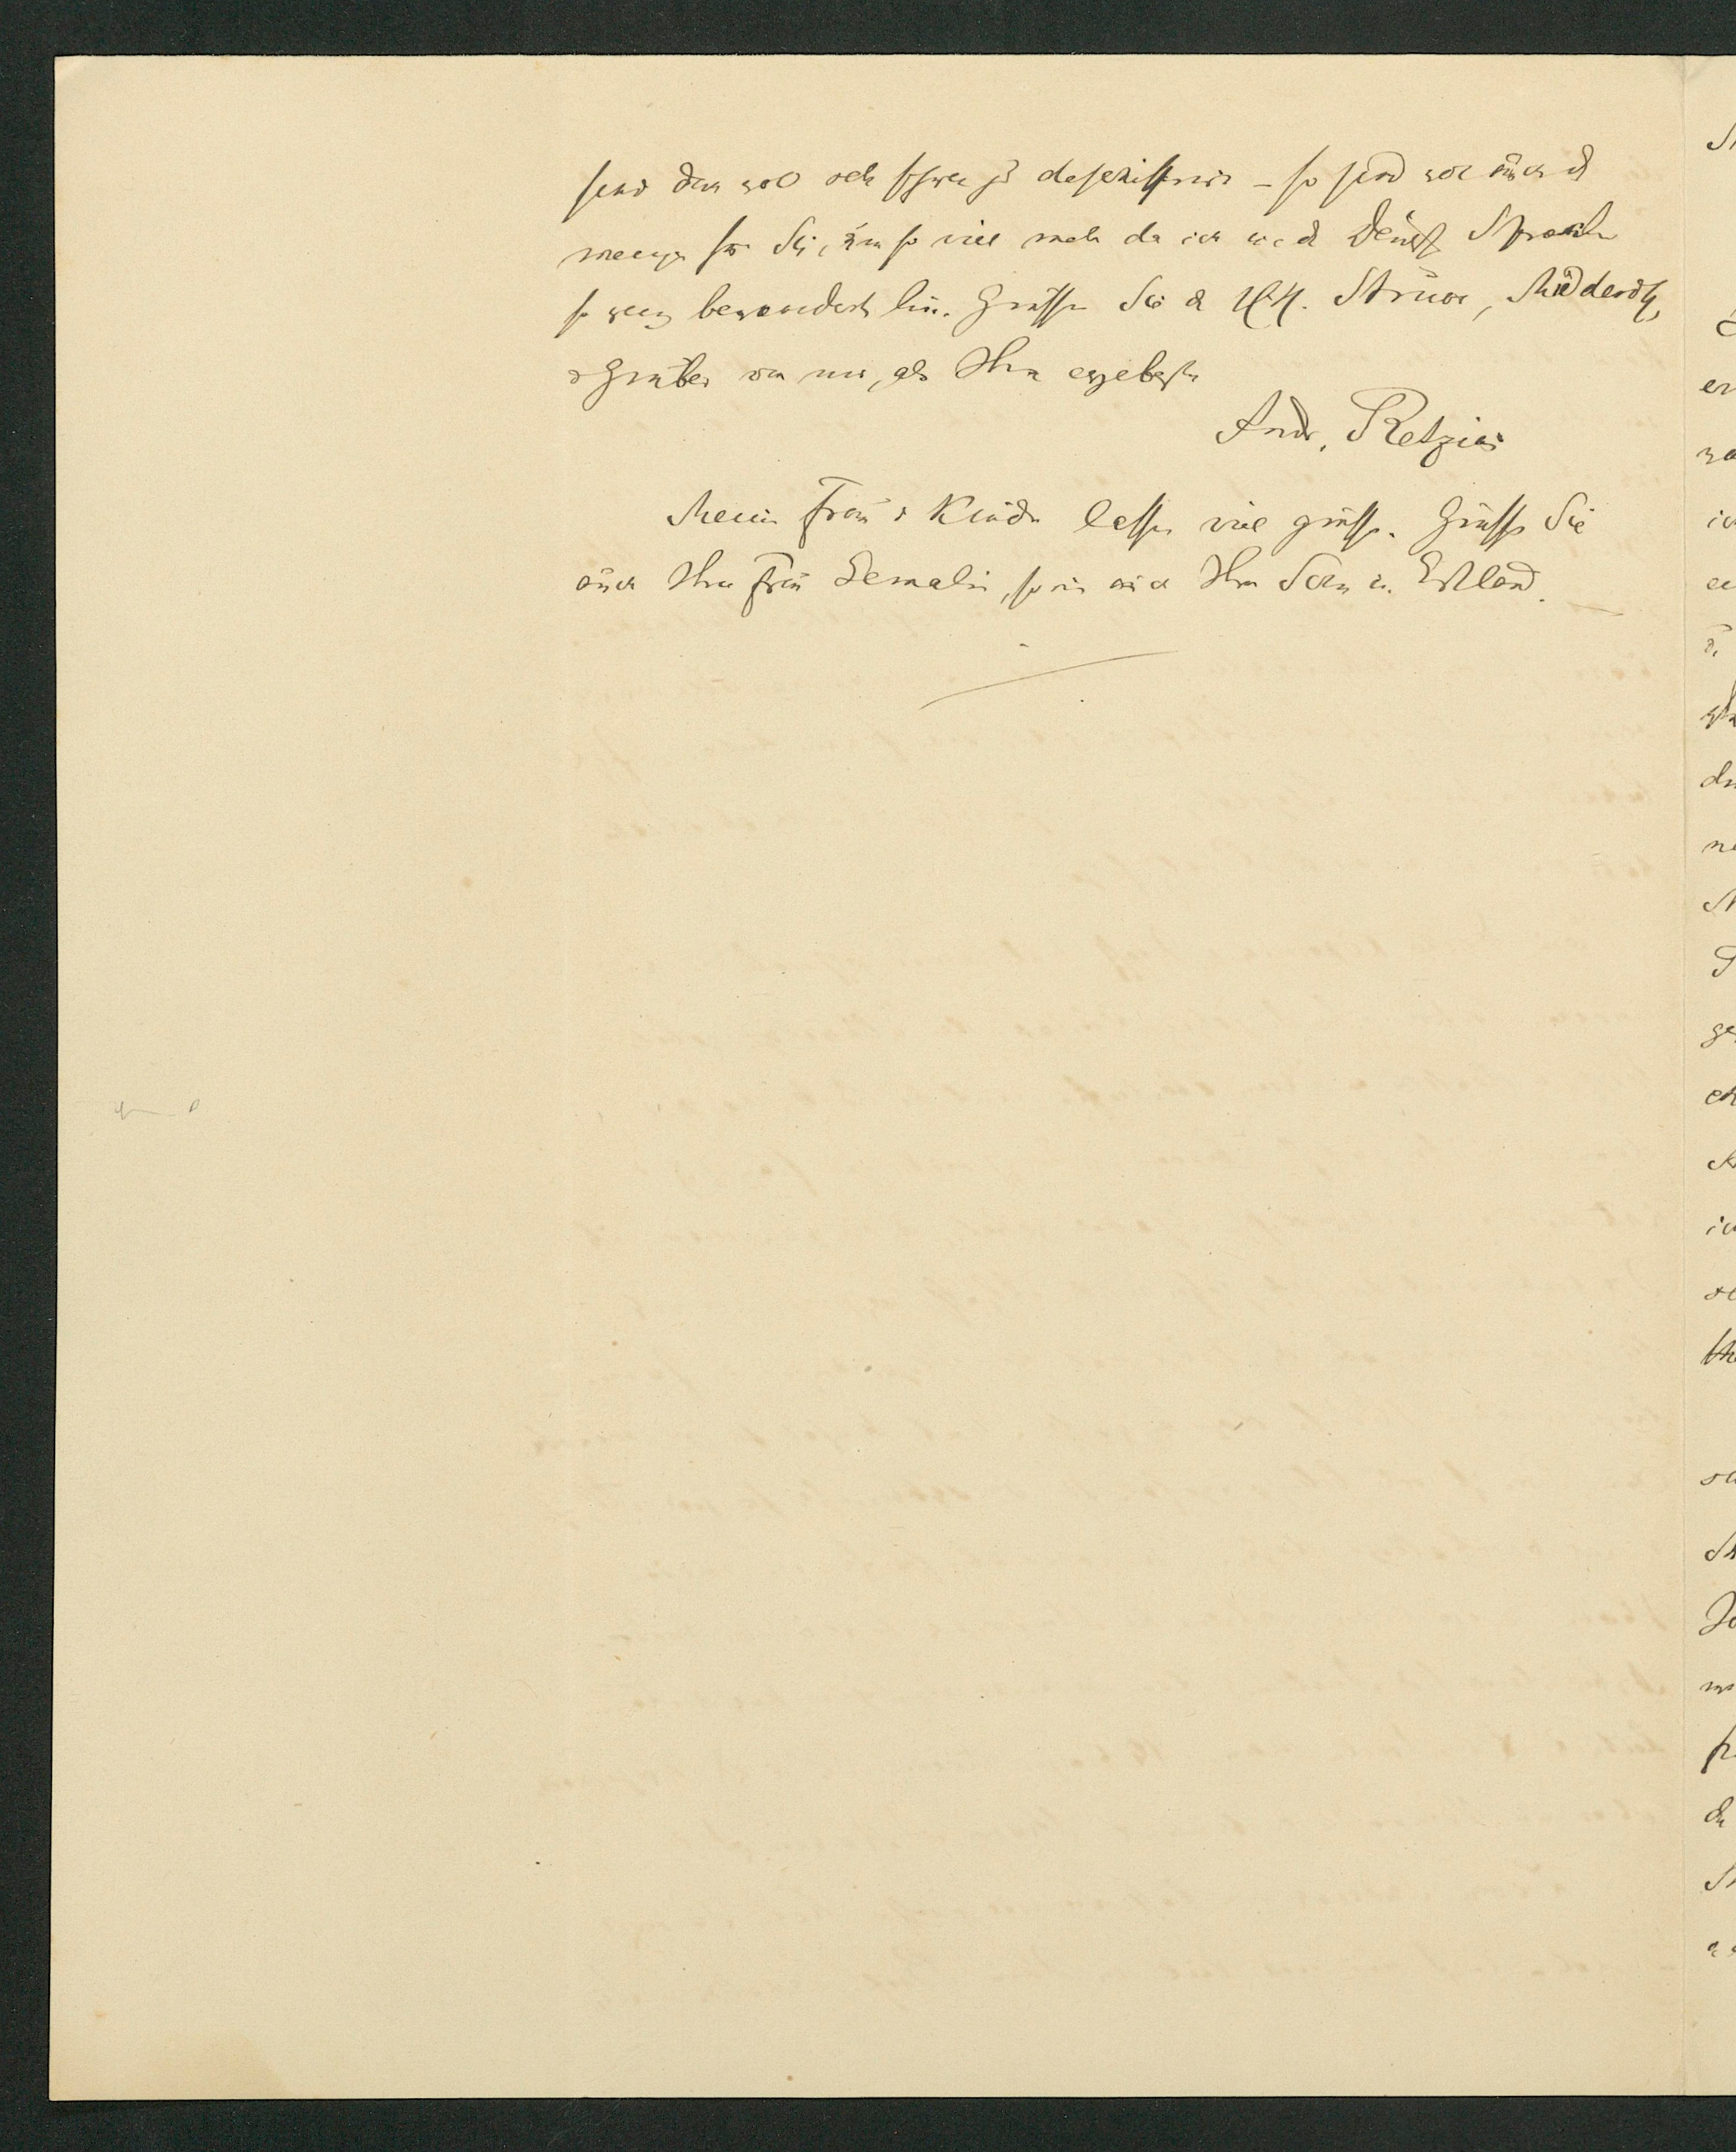 sind doch wol sehr schwer zu deschiffriren – so sind wol auch d
meinige für Sie, um so viel mehr da ich in d Deutsch Sprache
so wenig bewandert bin. Grüssen Sie d HH. Struve, Middendf,
& Gruber von mir, als Ihr ergebenster
Andr. Retzius
Meine Frau & Kinder lassen viel grüssen. Grüssen Sie
auch Ihre Frau Gemalin, so wie auch Ihre Söhne in Estland.